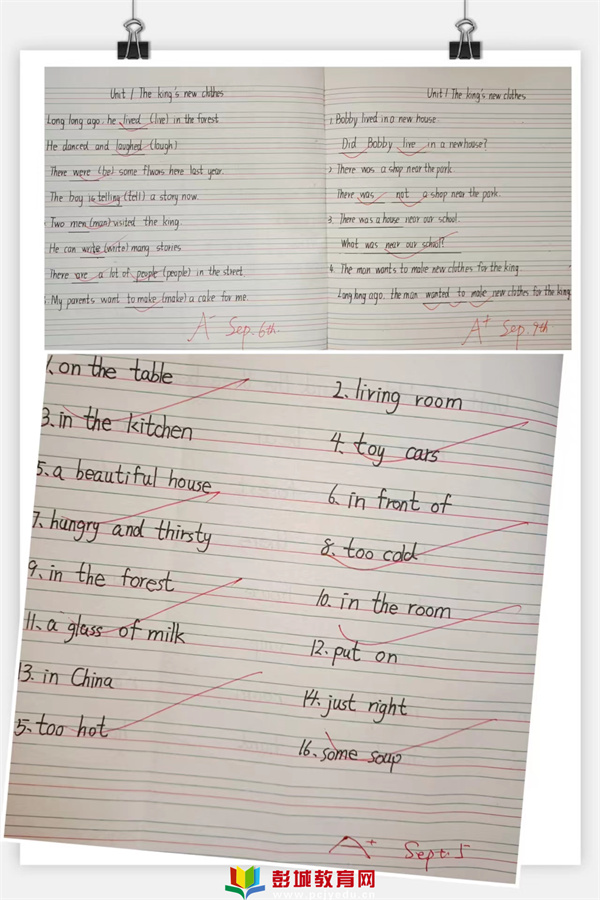 Unit 1 The king's new clothes
Long long ago, he lived (live) in the forest
He danced and laughed (laugh)
There were (be) some flwors here last year.
The boy is telling (tell) a story now.
Two men (man) visited the king.
He can write (write) many stories
There are a lot of people (people) in the street
My parents want to make (make) a cake for me.
A- Sep. 6th.
Unit 1 The king's new clothes
1. Bobby lived in a new house.
Did Bobby live in a new house?
2. There was a shop near the park.
There was not a shop near the park.
3. There was a house near our school.
What was near our school?
4. The man wants to make new clothes for the king.
Long long ago, the man wanted to make new clothes for the king
A+ Sep. 9th
1. on the table
2. living room
3. in the kitchen
4. toy cars
5. a beautiful house
6. in front of
7. hungry and thirsty
8. too cold
9. in the forest
10. in the room
11. a glass of milk
12. put on
13. in China
14. just right
5. too hot
16. some soup
A+ Sept. 5
彭城教育网